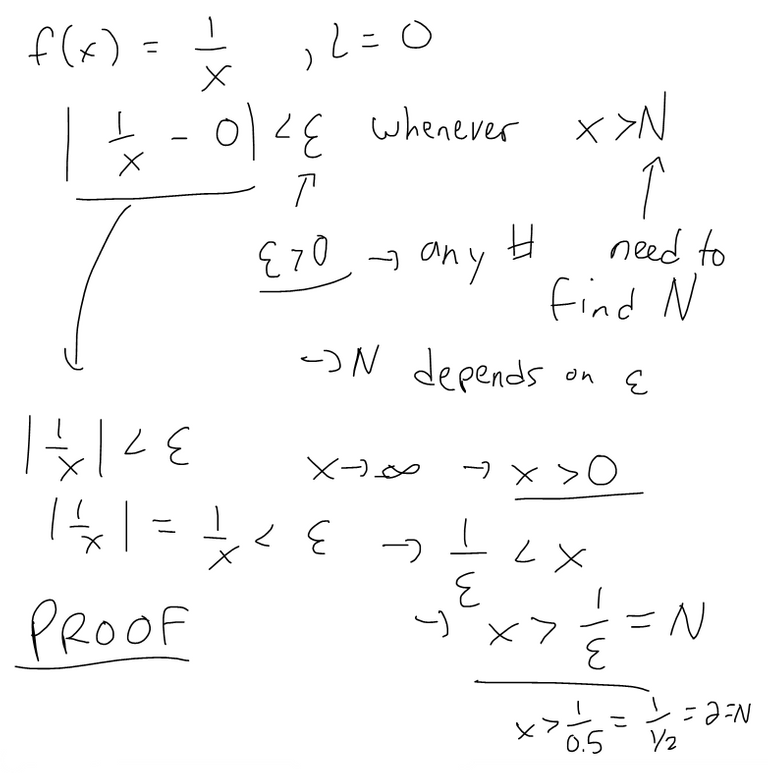 f(x) = 1/x , L = 0
| 1/x - 0 | < ε whenever x > N
↑ ↑
ε > 0 → any # need to
find N
→ N depends on ε
| 1/x | < ε x → ∞ → x > 0
| 1/x | = 1/x < ε → 1/ε < x
PROOF → x > 1/ε = N
x > 1/0.5 = 1/1/2 = 2 = N